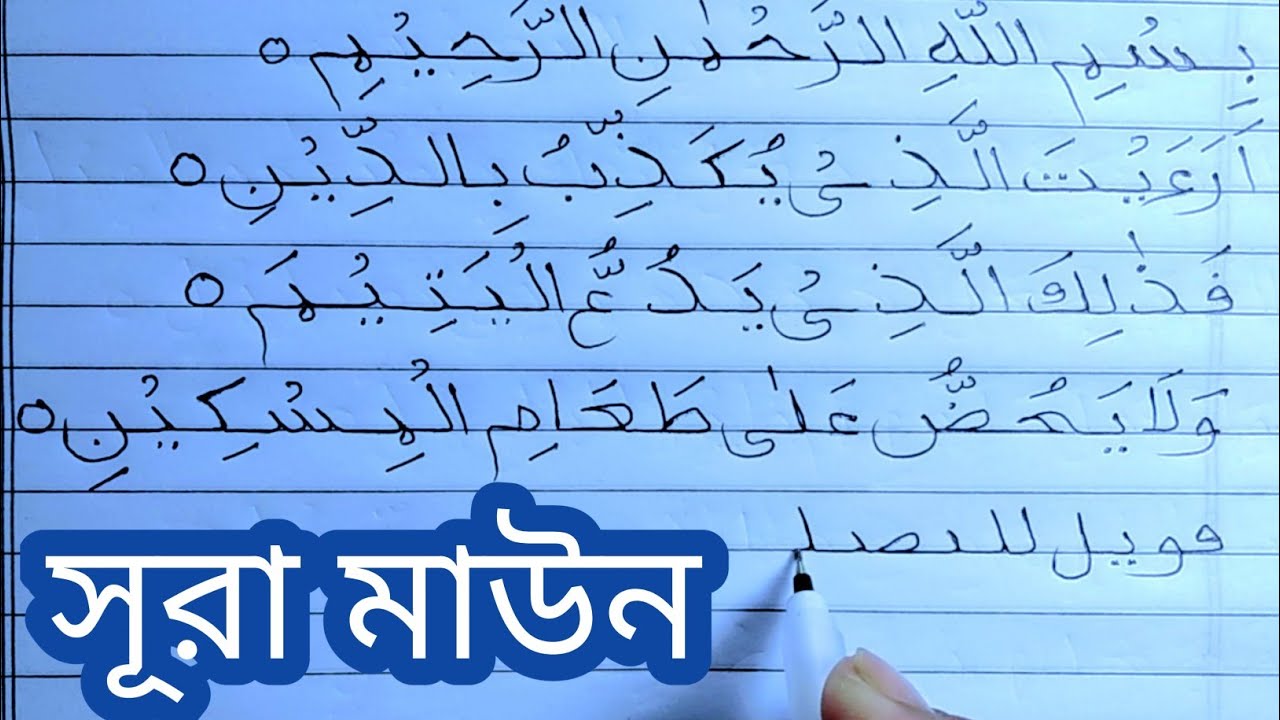 بِسْمِ اللّٰهِ الرَّحْمٰنِ الرَّحِيْمِ ०
اَرَءَيْتَ الَّذِىْ يُكَذِّبُ بِالدِّيْنِ ०
فَذٰلِكَ الَّذِىْ يَدُعُّ الْيَتِيْمَ ०
وَلَا يَحُضُّ عَلٰى طَعَامِ الْمِسْكِيْنِ ०
فويل للمصل
সূরা মাউন